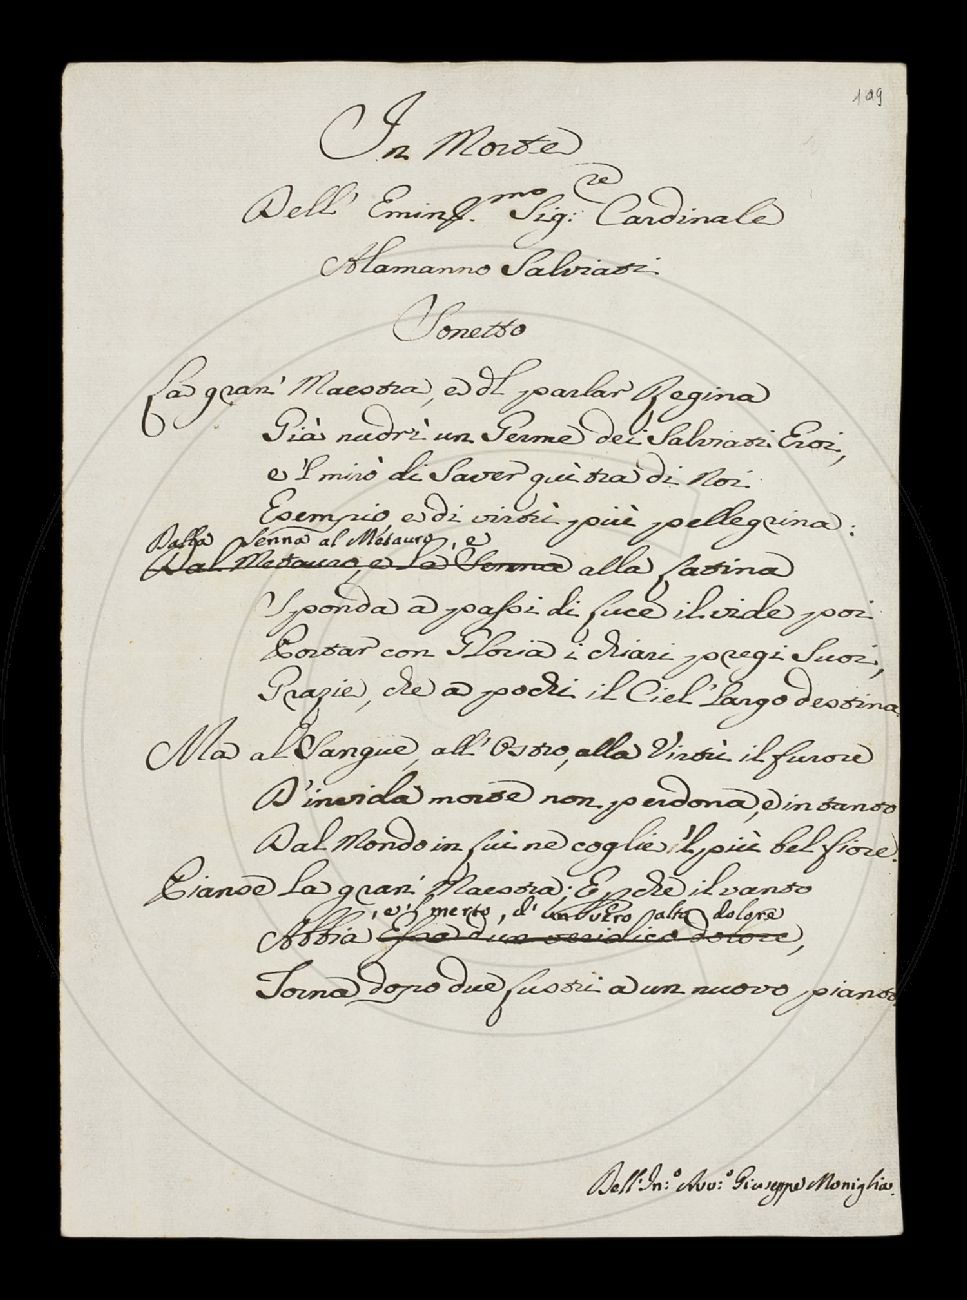 199
In Morte
Dell' Emin.mo Sig:re Cardinale
Alamanno Salviati
Sonetto
La gran' Maestra, e del parlar Regina
Già nudrì un Germe dei Salviati Eroi,
e 'l mirò di Saver quì tra di Noi
Esempio, e di virtù più pellegrina:
Dalla Senna al Metauro, e
Dal Metauro, e la Senna alla Latina
Sponda a passi di luce il vide poi
Portar con Gloria i chiari pregi Suoi,
Grazie, che a pochi il Ciel' largo destina.
Ma al Sangue, all' Ostro, alla Virtù il furore
D'invida morte non perdona, e intanto
Dal Mondo in lui ne coglie il più bel fiore.
Pianse la gran' Maestra; E perche il vanto
, e 'l merto, d' un vero alta dolore
Abbia Essa d'un veridico dolore,
Torna dopo due lustri a un nuovo pianto
Dell' In:o Avv:o Giuseppe Moniglia.